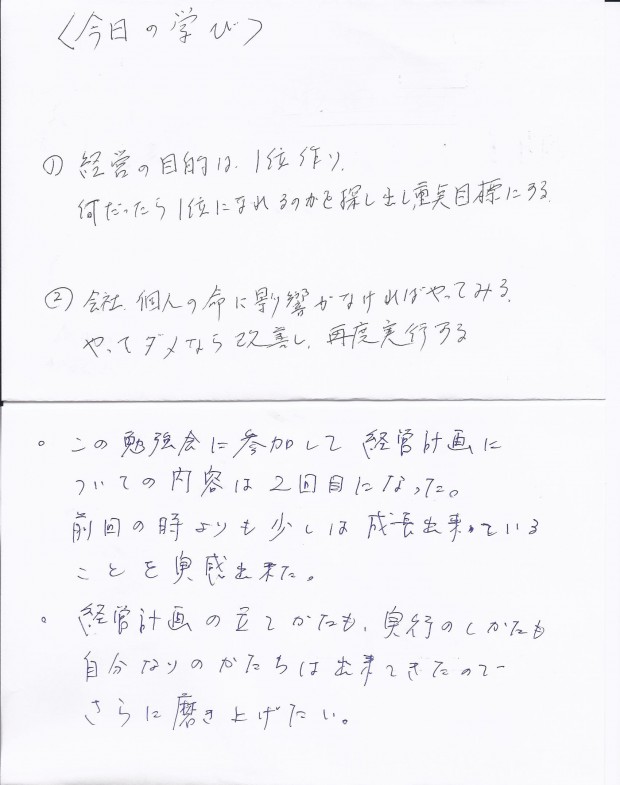 〈今日の学び〉
① 経営の目的は、1位作り、
何だったら1位になれるのかを探し出し、重点目標にする
② 会社、個人の命に影響がなければやってみる、
やってダメなら改善し、再度実行する
。この勉強会に参加して 経営計画に
ついての内容は2回目になった。
前回の時よりも少しは成長出来ている
ことを実感出来た。
。経営計画の立てかたも、実行のしかたも
自分なりのかたちは出来てきたので
さらに磨き上げたい。